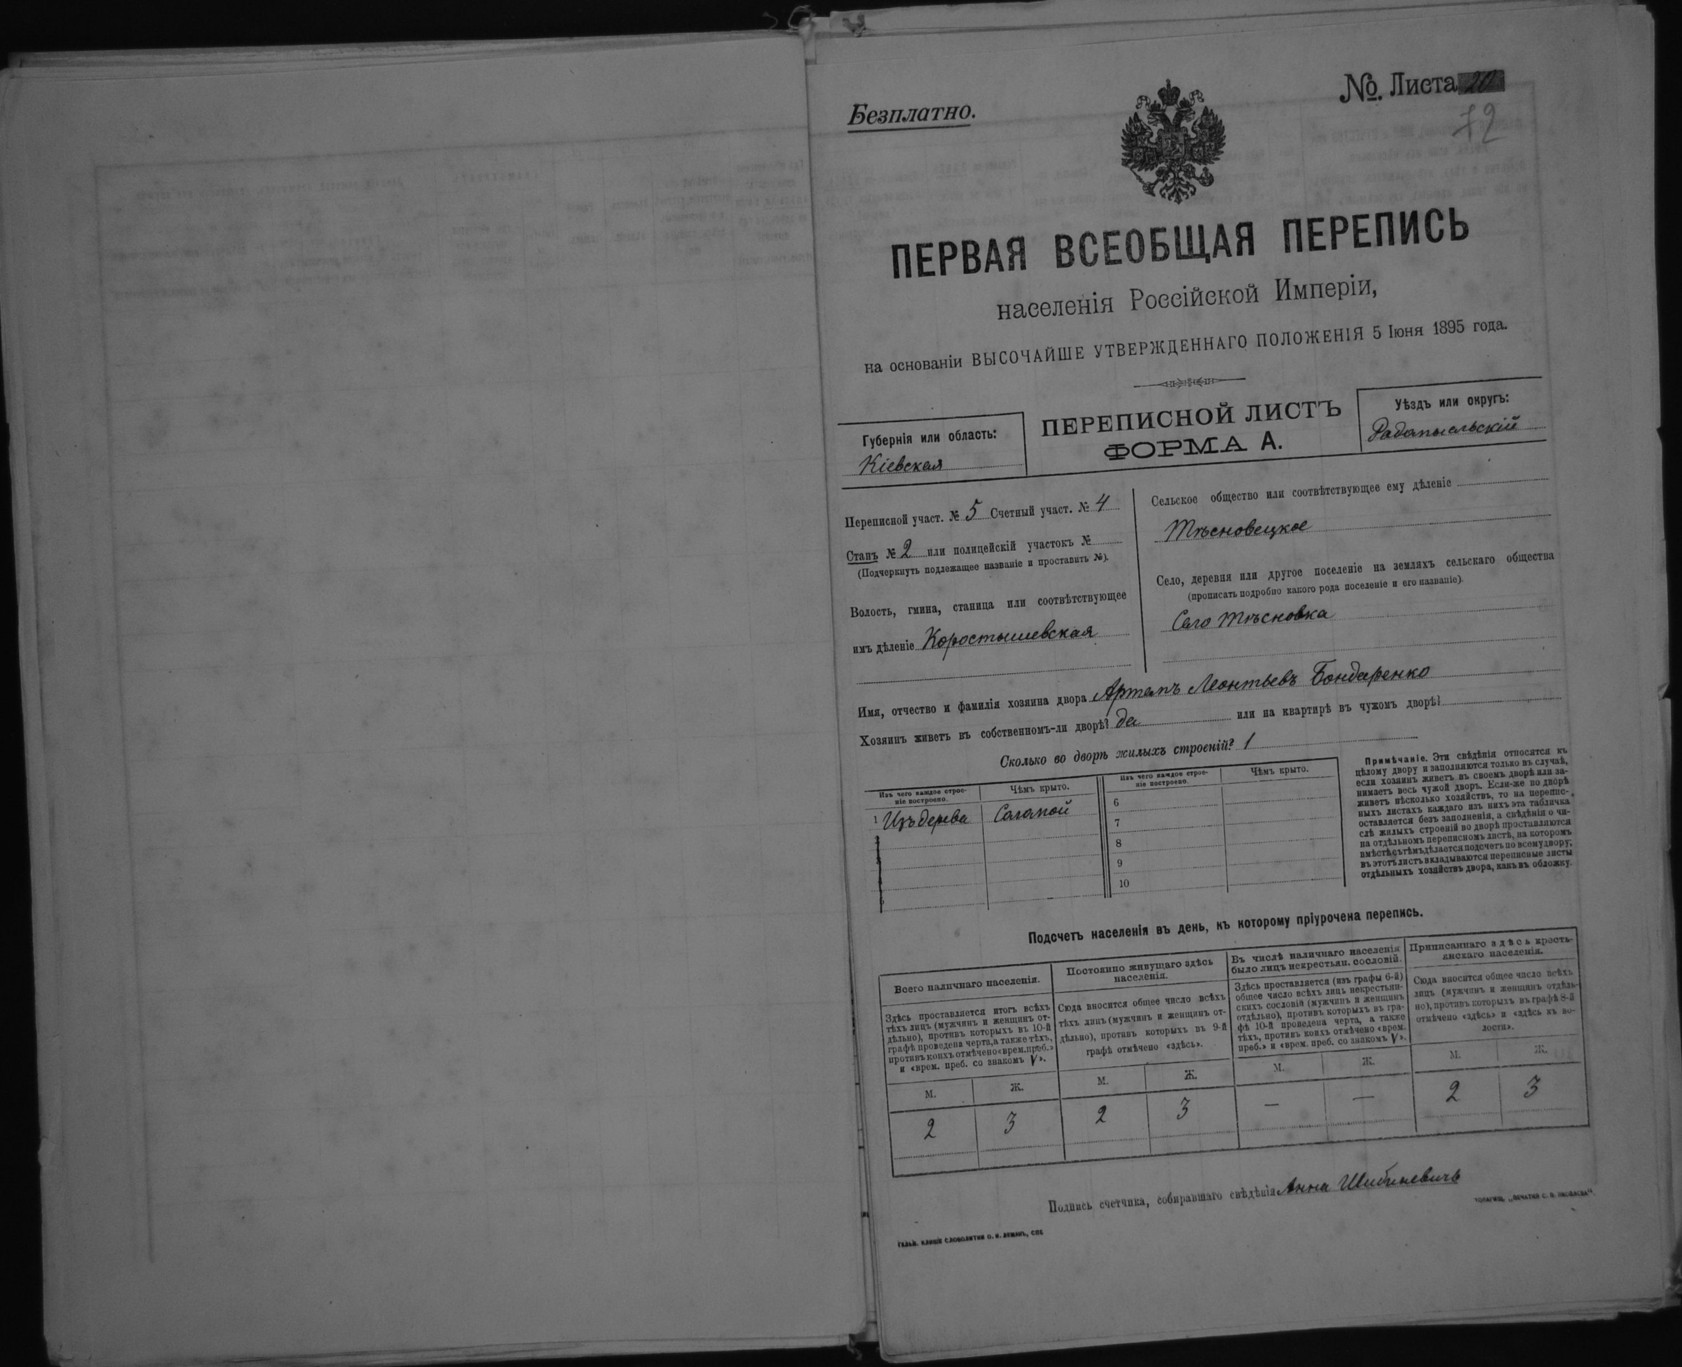 Безплатно.
№. Листа 20
72
ПЕРВАЯ ВСЕОБЩАЯ ПЕРЕПИСЬ
населенія Россійской Имперіи,
на основаніи ВЫСОЧАЙШЕ УТВЕРЖДЕННАГО ПОЛОЖЕНІЯ 5 Іюня 1895 года.
Губернія или область:
Кіевская
ПЕРЕПИСНОЙ ЛИСТЪ
ФОРМА А.
Уѣздъ или округъ:
Радомысльскій
Переписной участ. № 5 Счетный участ. № 4
Станъ № 2 или полицейскій участокъ №
(Подчеркнуть подлежащее названіе и проставить №).
Волость, гмина, станица или соотвѣтствующее
имъ дѣленіе Коростышевская
Сельское общество или соотвѣтствующее ему дѣленіе
Тѣсновецкое
Село, деревня или другое поселеніе на земляхъ сельскаго общества
(прописать подробно какого рода поселеніе и его названіе).
Село Тѣсновка
Имя, отчество и фамилія хозяина двора Артемъ Леонтьевъ Бондаренко
Хозяинъ живетъ въ собственномъ-ли дворѣ? да или на квартирѣ въ чужомъ дворѣ?
Сколько во дворѣ жилыхъ строеній? 1
Изъ чего каждое строе-
ніе построено.
Чѣмъ крыто.
1 Изъ дерева Соломой
Изъ чего каждое строе-
ніе построено.
Чѣмъ крыто.
6
7
8
9
10
Примѣчаніе. Эти свѣдѣнія относятся къ
цѣлому двору и заполняются только въ случаѣ,
если хозяинъ живетъ въ своемъ дворѣ или за-
нимаетъ весь чужой дворъ. Если-же во дворѣ
живетъ нѣсколько хозяйствъ, то на перепис-
ныхъ листахъ каждаго изъ нихъ эта табличка
оставляется безъ заполненія, а свѣдѣнія о чи-
слѣ жилыхъ строеній во дворѣ проставляются
на отдѣльномъ переписномъ листѣ, на которомъ
вмѣстѣ съ тѣмъ дѣлается подсчетъ по всему двору;
въ этотъ листъ вкладываются переписные листы
отдѣльныхъ хозяйствъ двора, какъ въ обложку.
Подсчетъ населенія въ день, къ которому пріурочена перепись.
Всего наличнаго населенія.
Здѣсь проставляется итогъ всѣхъ
тѣхъ лицъ (мужчинъ и женщинъ от-
дѣльно), противъ которыхъ въ 10-й
графѣ проведена черта, а также тѣхъ,
противъ коихъ отмѣчено «врем. преб.»
и «врем. преб. со знакомъ V».
М. Ж.
2 3
Постоянно живущаго здѣсь
населенія.
Сюда вносится общее число всѣхъ
тѣхъ лицъ (мужчинъ и женщинъ от-
дѣльно), противъ которыхъ въ 9-й
графѣ отмѣчено «здѣсь».
М. Ж.
2 3
Въ числѣ наличнаго населенія
было лицъ некрестьян. сословій.
Здѣсь проставляется (изъ графы 6-й)
общее число всѣхъ лицъ некрестьян-
скихъ сословій (мужчинъ и женщинъ
отдѣльно), противъ которыхъ въ гра-
фѣ 10-й проведена черта, а также
тѣхъ, противъ коихъ отмѣчено «врем.
преб.» и «врем. преб. со знакомъ V».
М. Ж.
— —
Приписаннаго здѣсь кресть-
янскаго населенія.
Сюда вносится общее число всѣхъ
лицъ (мужчинъ и женщинъ отдѣль-
но), противъ которыхъ въ графѣ 8-й
отмѣчено «здѣсь» и «здѣсь въ во-
лости».
М. Ж.
2 3
Подпись счетчика, собиравшаго свѣдѣнія Анна Шибиневичъ
СЛОВОЛИТНИ О. И. ЛЕМАНЪ, СПБ